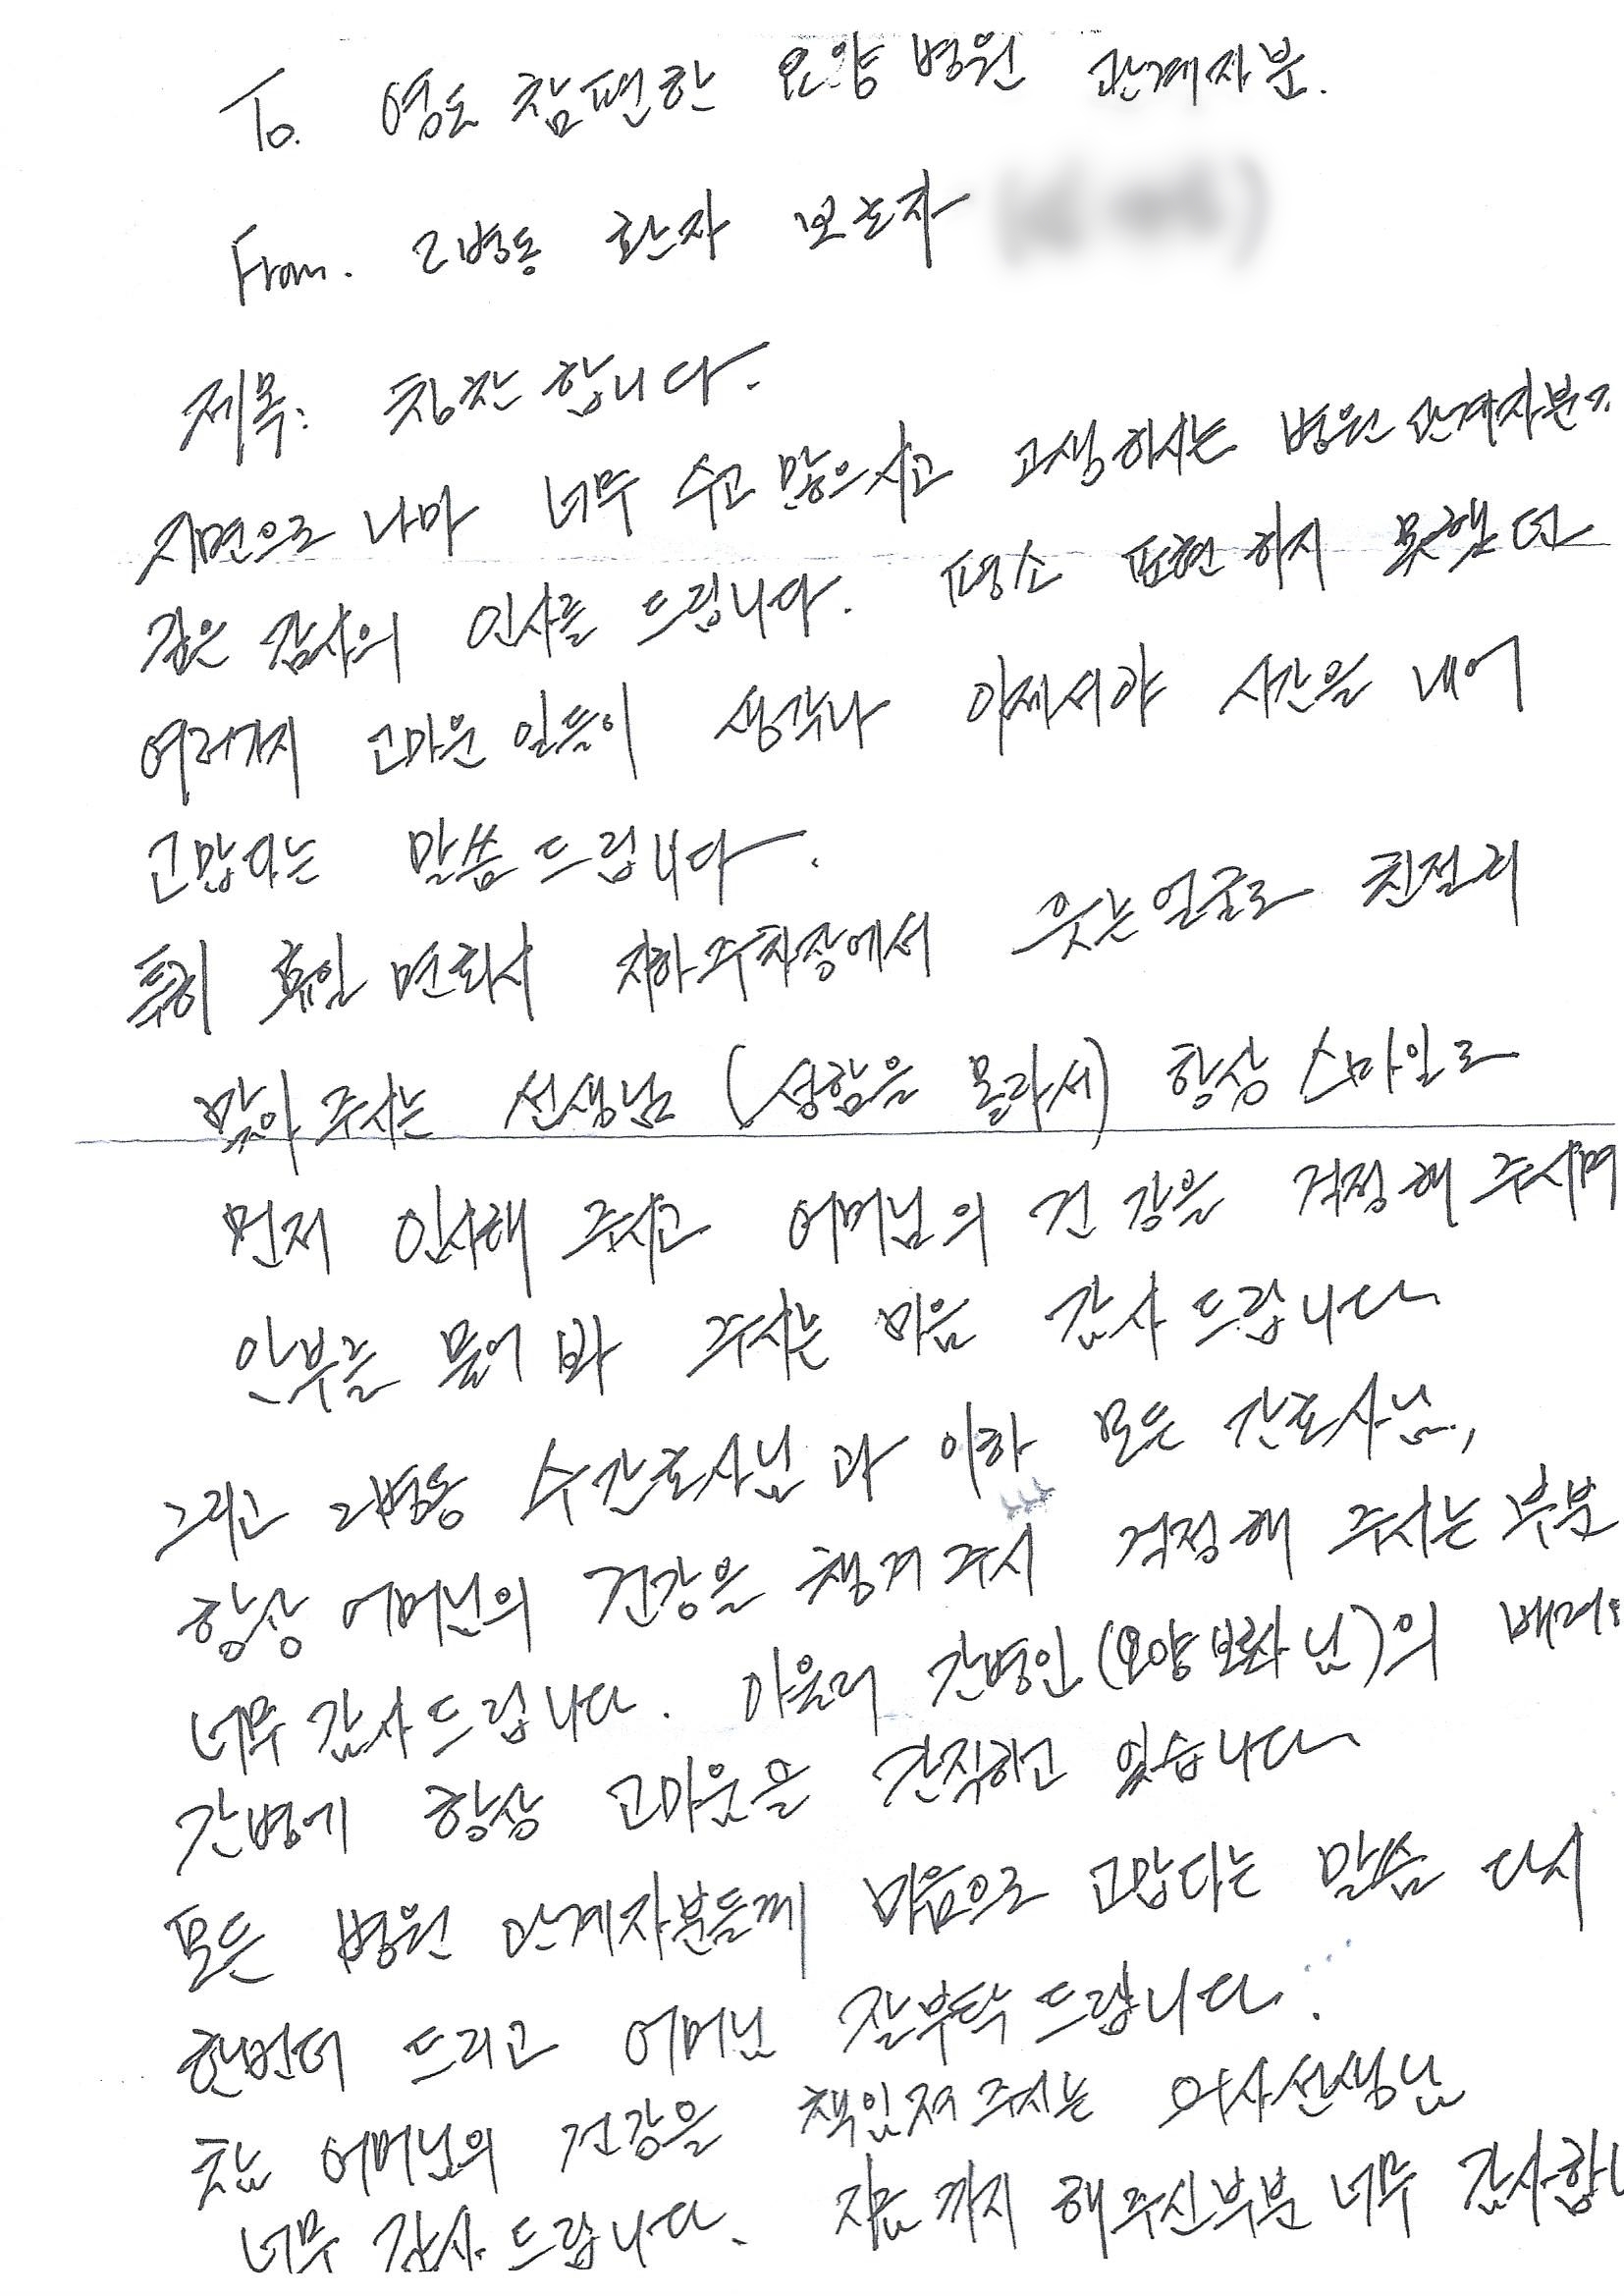 To. 영도 참편한 요양병원 관계자분.
From. 2병동 환자 보호자
제목: 칭찬합니다.
지면으로 나마 너무 수고 많으시고 고생하시는 병원 관계자분께
깊은 감사의 인사를 드립니다. 평소 표현하지 못했던
여러가지 고마운 일들이 생각나 이제서야 시간을 내어
고맙다는 말씀 드립니다.
특히 휴일 면회시 지하주차장에서 웃는얼굴로 친절히
맞아주시는 선생님 (성함을 몰라서) 항상 스마일로
먼저 인사해 주시고 어머님의 건강을 걱정해 주시며
안부를 물어 봐 주시는 마음 감사드립니다
그리고 2병동 수간호사님과 이하 모든 간호사님,
항상 어머님의 건강을 챙겨주시 걱정해 주시는 부분
너무 감사드립니다. 아울러 간병인(요양보호사님)의
간병에 항상 고마움을 간직하고 있습니다
모든 병원 관계자분들께 마음으로 고맙다는 말씀 다시
한번더 드리고 어머님 잘부탁드립니다.
참 어머님의 건강을 책임져주시는 의사선생님
너무 감사드립니다. 지금까지 해주신부분 너무 감사합니